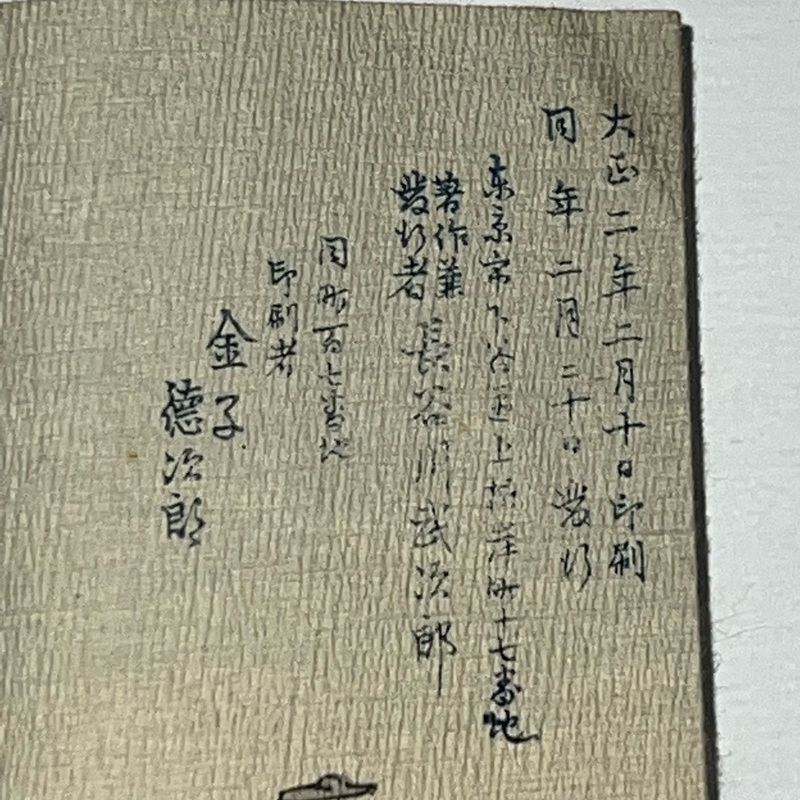 大正二年二月十日印刷
同年二月二十日發行
東京市下谷區上根岸町十七番地
著作兼
發行者
長谷川武次郎
同町百七番地
印刷者
金子
德次郎